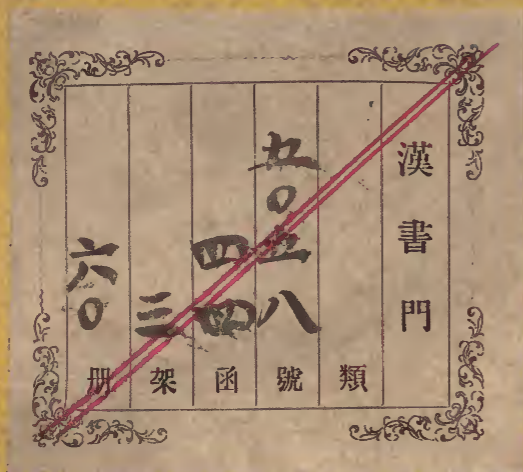 漢書門
類
九〇五八號
四四函
三架
六〇册